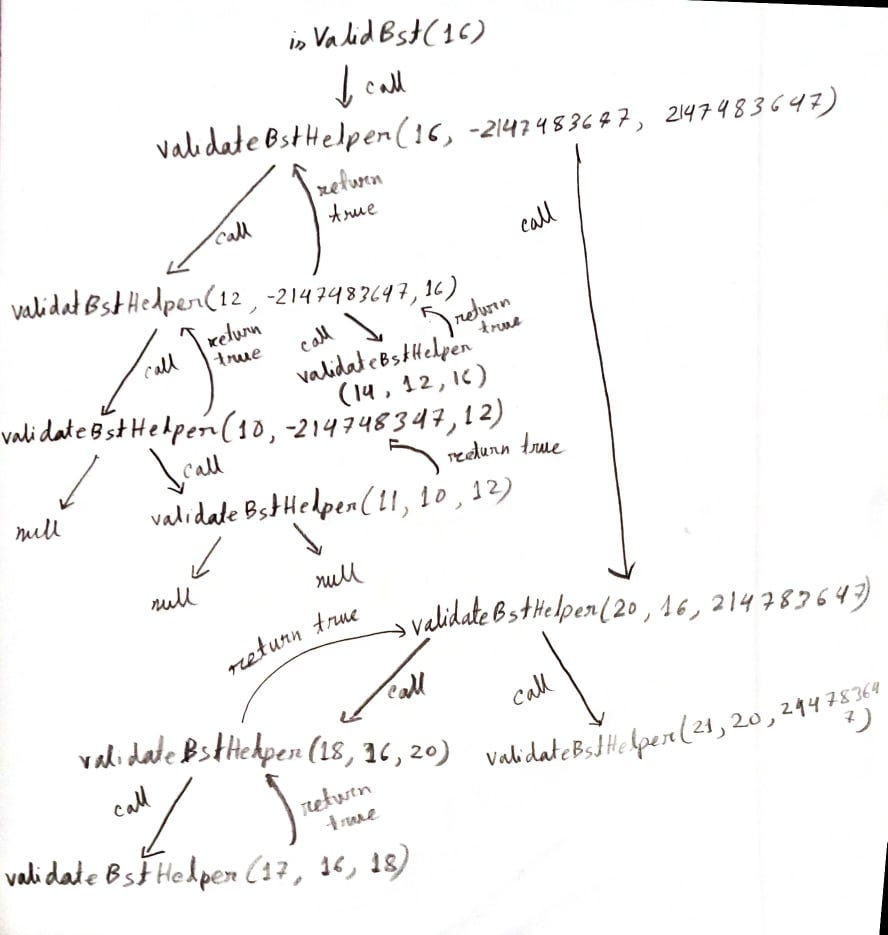 isValidBst(16)
call
validateBstHelper(16, -2147483647, 2147483647)
return
true
call
call
validatBstHelper(12, -2147483647, 16)
return
true
call
call
return
true
validateBstHelper
(14, 12, 16)
validateBstHelper(10, -214748347, 12)
return true
call
null
validateBstHelper(11, 10, 12)
null
null
return true
validateBstHelper(20, 16, 214783647)
call
call
validateBstHelper(18, 16, 20)
validateBstHelper(21, 20, 214748364
7)
call
return
true
validateBstHelper(17, 16, 18)